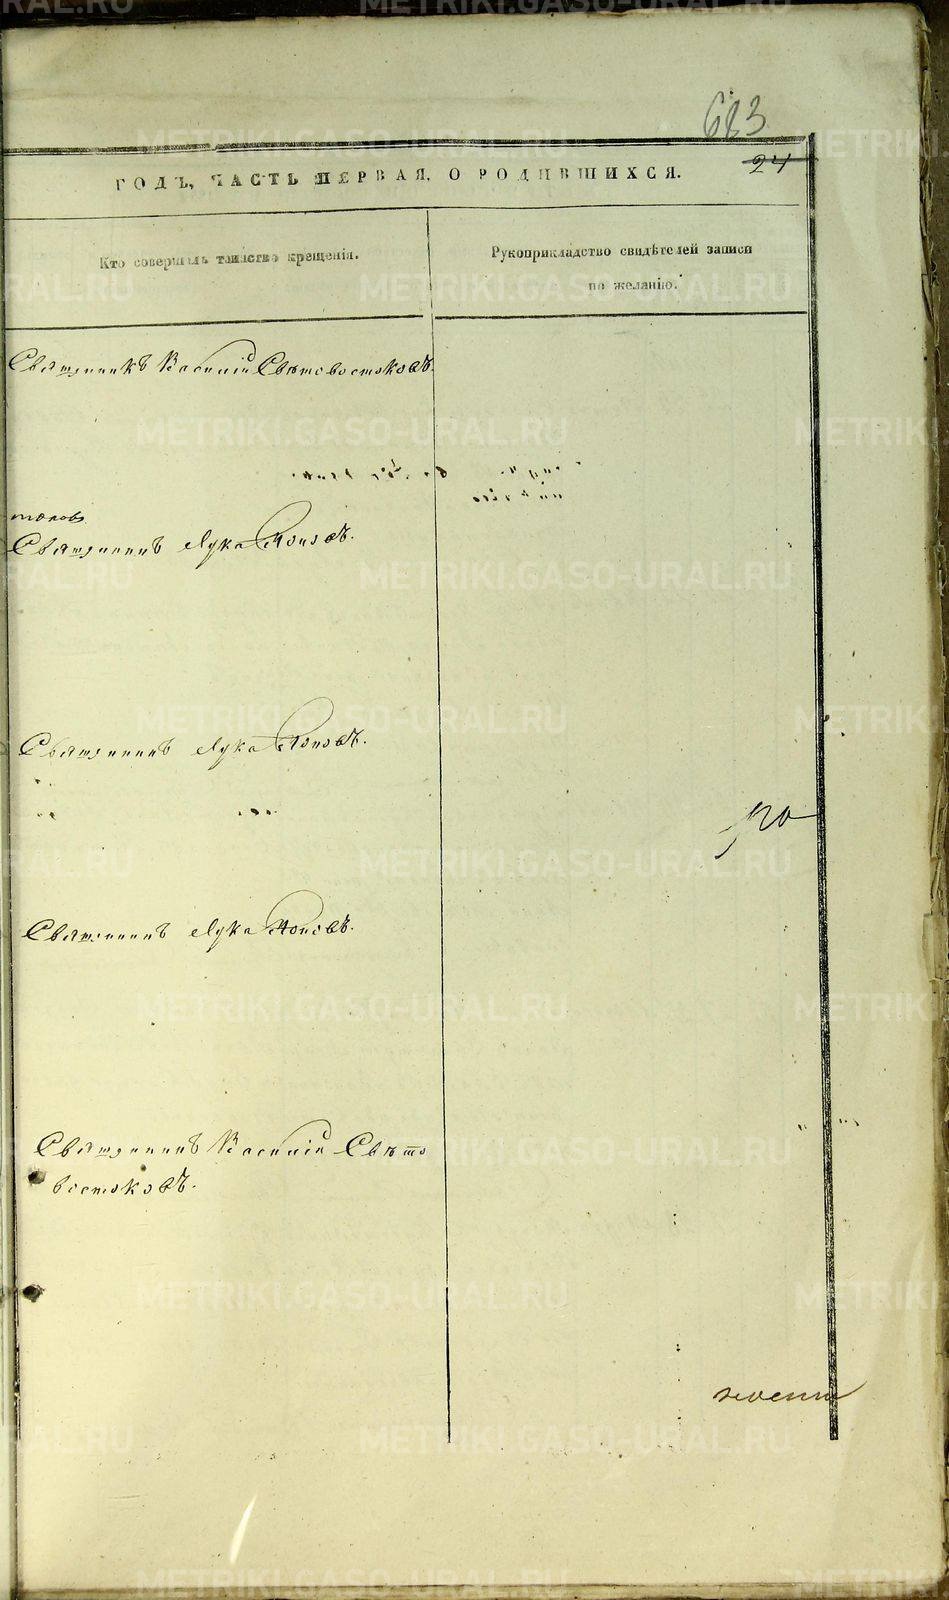 683
24
ГОДЪ, ЧАСТЬ ПЕРВАЯ, О РОДИВШИХСЯ.
Кто совершилъ таинство крещенія.
Рукоприкладство свидѣтелей записи
по желанію.
Священникъ Василій Свѣтовостоковъ.
Священникъ Лука Поповъ.
Священникъ Лука Поповъ.
Священникъ Лука Поповъ.
Священникъ Василій Свѣто
востоковъ.
METRIKI.GASO-URAL.RU